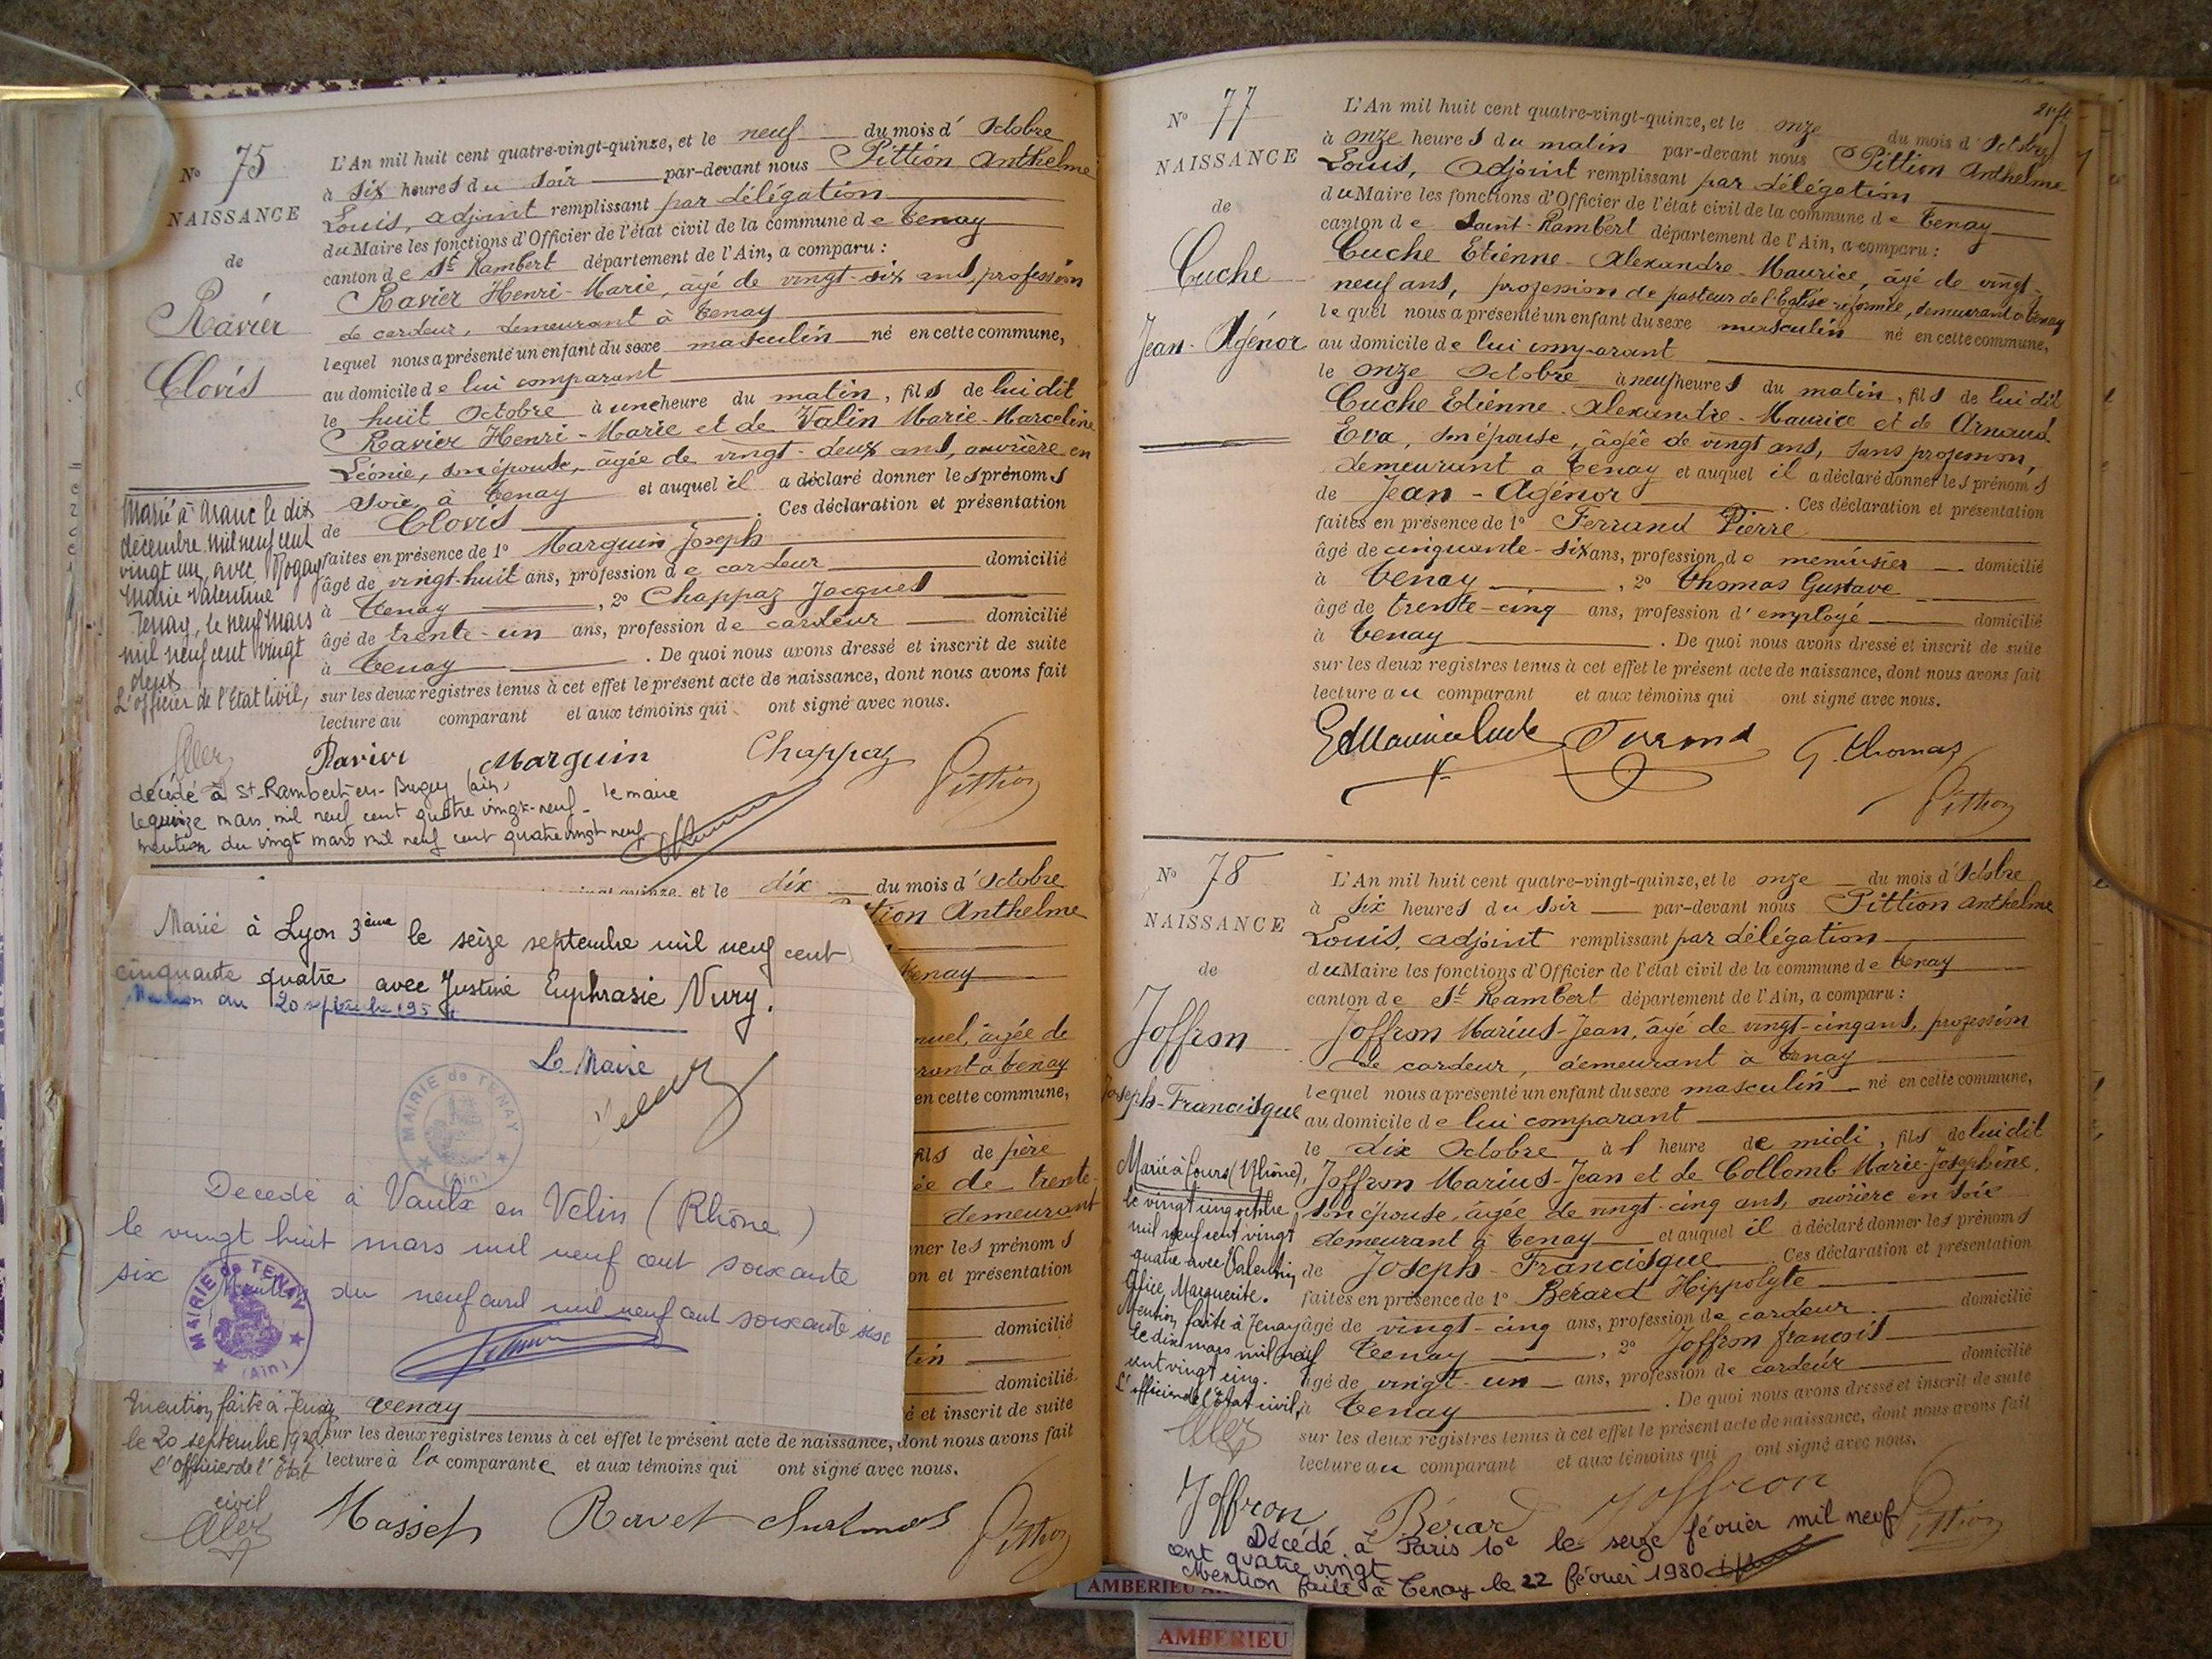 N° 75
NAISSANCE
de
Ravier
Clovis
L'An mil huit cent quatre-vingt-quinze, et le neuf du mois d'Octobre
à six heures du soir par-devant nous Pittion Anthelme
Louis, adjoint remplissant par délégation
du Maire les fonctions d'Officier de l'état civil de la commune de Tenay
canton de St Rambert département de l'Ain, a comparu :
Ravier Henri-Marie, âgé de vingt-six ans, profession
de cardeur, demeurant à Tenay
lequel nous a présenté un enfant du sexe masculin né en cette commune,
au domicile de lui comparant
le huit Octobre à une heure du matin, fils de lui dit
Ravier Henri-Marie et de Valin Marie-Marceline
Léonie, son épouse, âgée de vingt-deux ans, ouvrière en
soie à Tenay et auquel il a déclaré donner les prénoms
de Clovis. Ces déclaration et présentation
faites en présence de 1° Marguin Joseph
âgé de vingt-huit ans, profession de cardeur domicilié
à Tenay, 2° Chappaz Jacques
âgé de trente-un ans, profession de cardeur domicilié
à Tenay. De quoi nous avons dressé et inscrit de suite
sur les deux registres tenus à cet effet le présent acte de naissance, dont nous avons fait
lecture au comparant et aux témoins qui ont signé avec nous.
Marié à Aranc le dix
décembre mil neuf cent
vingt un, avec Rogay
Marie Valentine
Tenay, le neuf mars
mil neuf cent vingt
deux
L'officier de l'Etat civil,
Ravier Marguin Chappaz Pittion
décédé à St-Rambert-en-Bugey (Ain) le maire
le quinze mars mil neuf cent quatre vingt-neuf
mention du vingt mars mil neuf cent quatre vingt neuf
et le dix du mois d'Octobre
Pittion Anthelme
Tenay
Marié à Lyon 3ème le seize septembre mil neuf cent
cinquante quatre avec Justine Euphrasie Nury.
Mention du 20 septembre 1954
Le Maire
MAIRIE de TENAY
(Ain)
Decedé à Vaulx en Velin (Rhône)
le vingt huit mars mil neuf cent soixante
six Mention du neuf avril mil neuf cent soixante six
MAIRIE de TENAY
(Ain)
nuel, âgée de
rant à Tenay
en cette commune,
fils de père
ée de trente-
demeurant
ner les prénoms
on et présentation
domicilié
tin
domicilié
é et inscrit de suite
Tenay
sur les deux registres tenus à cet effet le présent acte de naissance, dont nous avons fait
lecture à la comparante et aux témoins qui ont signé avec nous.
Mention faite à Tenay
le 20 septembre
l'officier de l'état
civil
Pittion
N° 77
NAISSANCE
de
Cuche
Jean-Agénor
L'An mil huit cent quatre-vingt-quinze, et le onze du mois d'Octobre
à onze heures du matin par-devant nous Pittion Anthelme
Louis, Adjoint remplissant par délégation
du Maire les fonctions d'Officier de l'état civil de la commune de Tenay
canton de Saint-Rambert département de l'Ain, a comparu :
Cuche Etienne-Alexandre-Maurice, âgé de vingt-
neuf ans, profession de pasteur de l'Eglise réformée, demeurant à Tenay
lequel nous a présenté un enfant du sexe masculin né en cette commune,
au domicile de lui comparant
le onze Octobre à neuf heures du matin, fils de lui dit
Cuche Etienne-Alexandre-Maurice et de Arnaud
Eva, son épouse, âgée de vingt ans, sans profession,
demeurant à Tenay et auquel il a déclaré donner les prénoms
de Jean-Agénor. Ces déclaration et présentation
faites en présence de 1° Ferrand Pierre
âgé de cinquante-six ans, profession de menuisier domicilié
à Tenay, 2° Thomas Gustave
âgé de trente-cinq ans, profession d'employé domicilié
à Tenay. De quoi nous avons dressé et inscrit de suite
sur les deux registres tenus à cet effet le présent acte de naissance, dont nous avons fait
lecture au comparant et aux témoins qui ont signé avec nous.
G. Thomas
Pittion
N° 78
NAISSANCE
de
Joffron
Joseph-Francisque
L'An mil huit cent quatre-vingt-quinze, et le onze du mois d'Octobre
à six heures du soir par-devant nous Pittion Anthelme
Louis, adjoint remplissant par délégation
du Maire les fonctions d'Officier de l'état civil de la commune de Tenay
canton de St Rambert département de l'Ain, a comparu :
Joffron Marius-Jean, âgé de vingt-cinq ans, profession
de cardeur, demeurant à Tenay
lequel nous a présenté un enfant du sexe masculin né en cette commune,
au domicile de lui comparant
le dix Octobre à 1 heure de midi, fils de lui dit
Joffron Marius-Jean et de Collomb Marie-Josephine,
son épouse, âgée de vingt-cinq ans, ouvrière en soie
demeurant à Tenay et auquel il a déclaré donner les prénoms
de Joseph-Francisque. Ces déclaration et présentation
faites en présence de 1° Bérard Hippolyte
âgé de vingt-cinq ans, profession de cardeur domicilié
Tenay, 2° Joffron françois
âgé de vingt-un ans, profession de cardeur domicilié
à Tenay. De quoi nous avons dressé et inscrit de suite
sur les deux registres tenus à cet effet le présent acte de naissance, dont nous avons fait
lecture au comparant et aux témoins qui ont signé avec nous.
Marié à Cours (Rhône),
le vingt cinq octobre
mil neuf cent vingt
quatre avec Valentin
Alice, Marguerite.
Mention faite à Tenay
le dix mars mil neuf
cent vingt cinq.
L'officier de l'état civil,
Joffron Bérard Joffron Pittion
Décédé à Paris 10e le seize février mil neuf
cent quatre vingt
Mention faite à Tenay le 22 février 1980
AMBERIEU
AMBERIEU